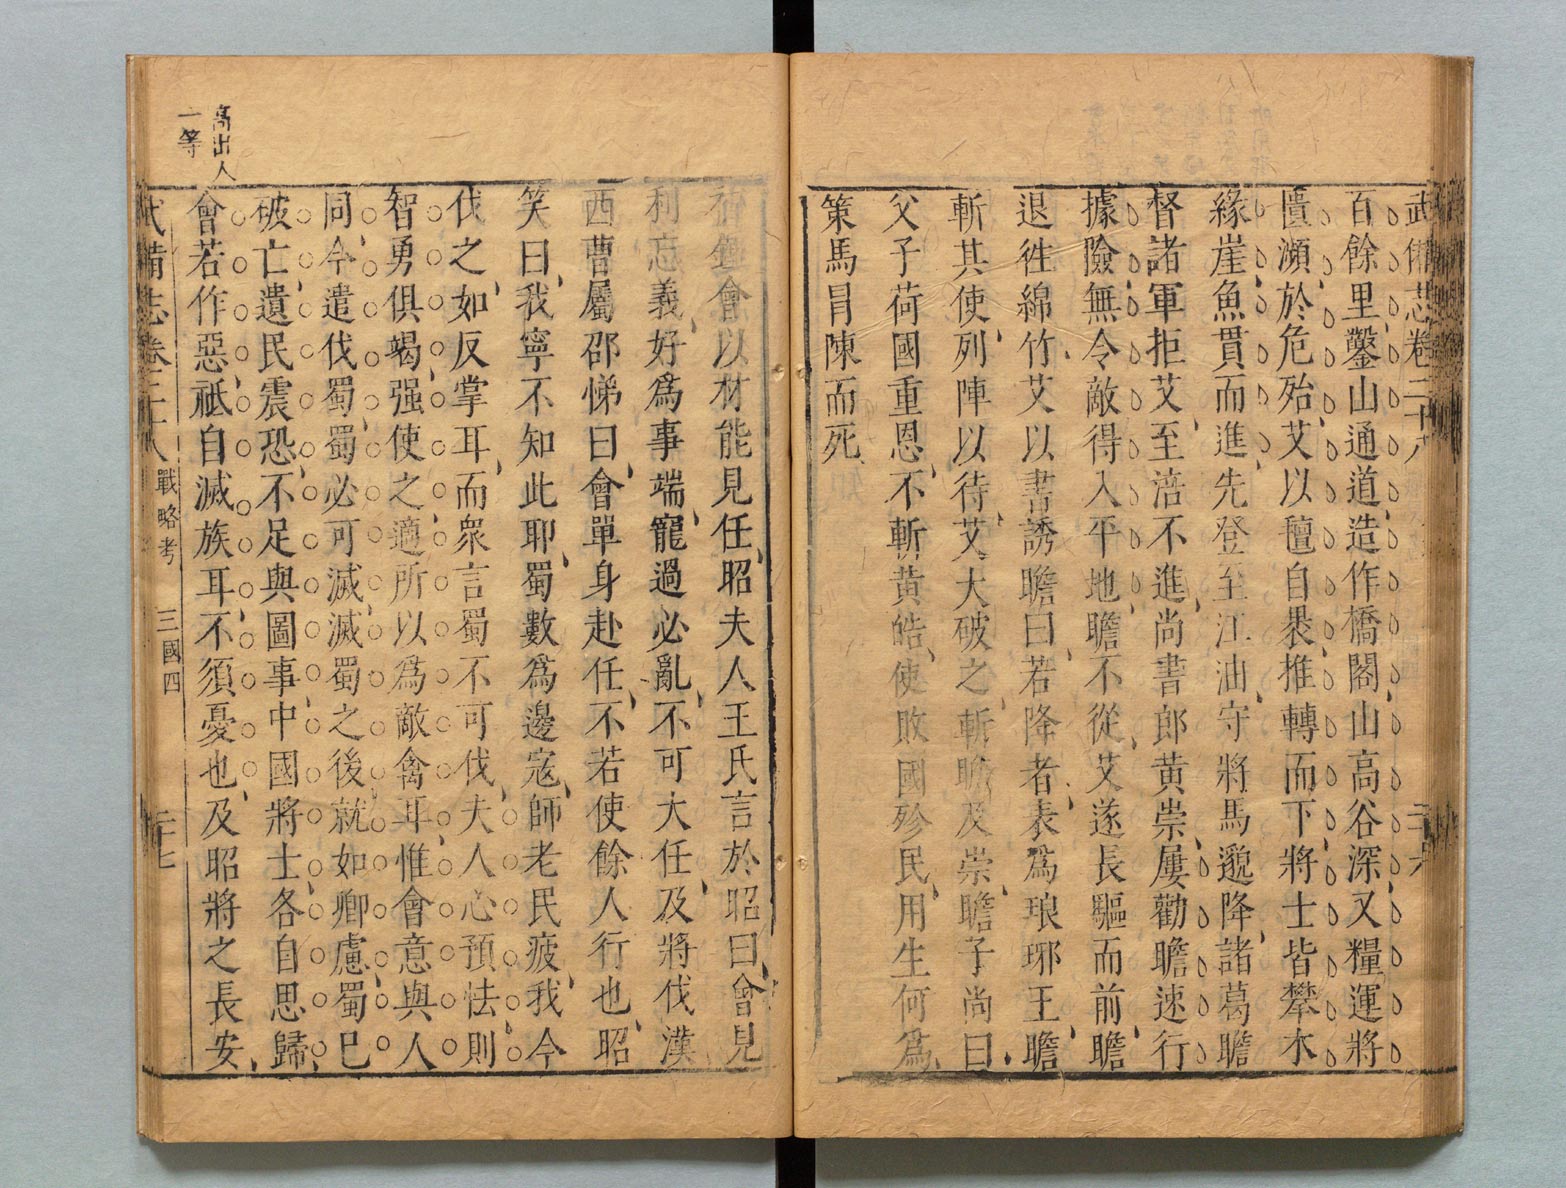 武備志卷二十八
二十六
百餘里鑿山通道造作橋閣山高谷深又糧運將
匱瀕於危殆艾以氊自裹推轉而下將士皆攀木
緣崖魚貫而進先登至江油守將馬邈降諸葛瞻
督諸軍拒艾至涪不進尚書郎黃崇屢勸瞻速行
據險無令敵得入平地瞻不從艾遂長驅而前瞻
退徃綿竹艾以書誘瞻曰若降者表爲琅琊王瞻
斬其使列陣以待艾大破之斬瞻及崇瞻子尚曰
父子荷國重恩不斬黃皓使敗國殄民用生何爲
策馬冒陳而死
初鍾會以材能見任昭夫人王氏言於昭曰會見
利忘義好爲事端寵過必亂不可大任及將伐漢
西曹屬邵悌曰會單身赴任不若使餘人行也昭
笑曰我寧不知此耶蜀數爲邊寇師老民疲我今
伐之如反掌耳而衆言蜀不可伐夫人心預怯則
智勇俱竭强使之適所以爲敵禽耳惟會意與人
同今遣伐蜀蜀必可滅滅蜀之後就如卿慮蜀已
破亡遺民震恐不足與圖事中國將士各自思歸
會若作惡祗自滅族耳不須憂也及昭將之長安
高出人
一等
武備志卷二十八
戰略考
三國四
二十七